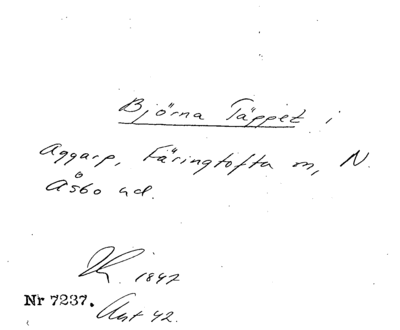 Björna Täppet i
Aggarp, Färingtofta sn, N.
Åsbo hd.
1847
Nr 7237.
Avst 42.